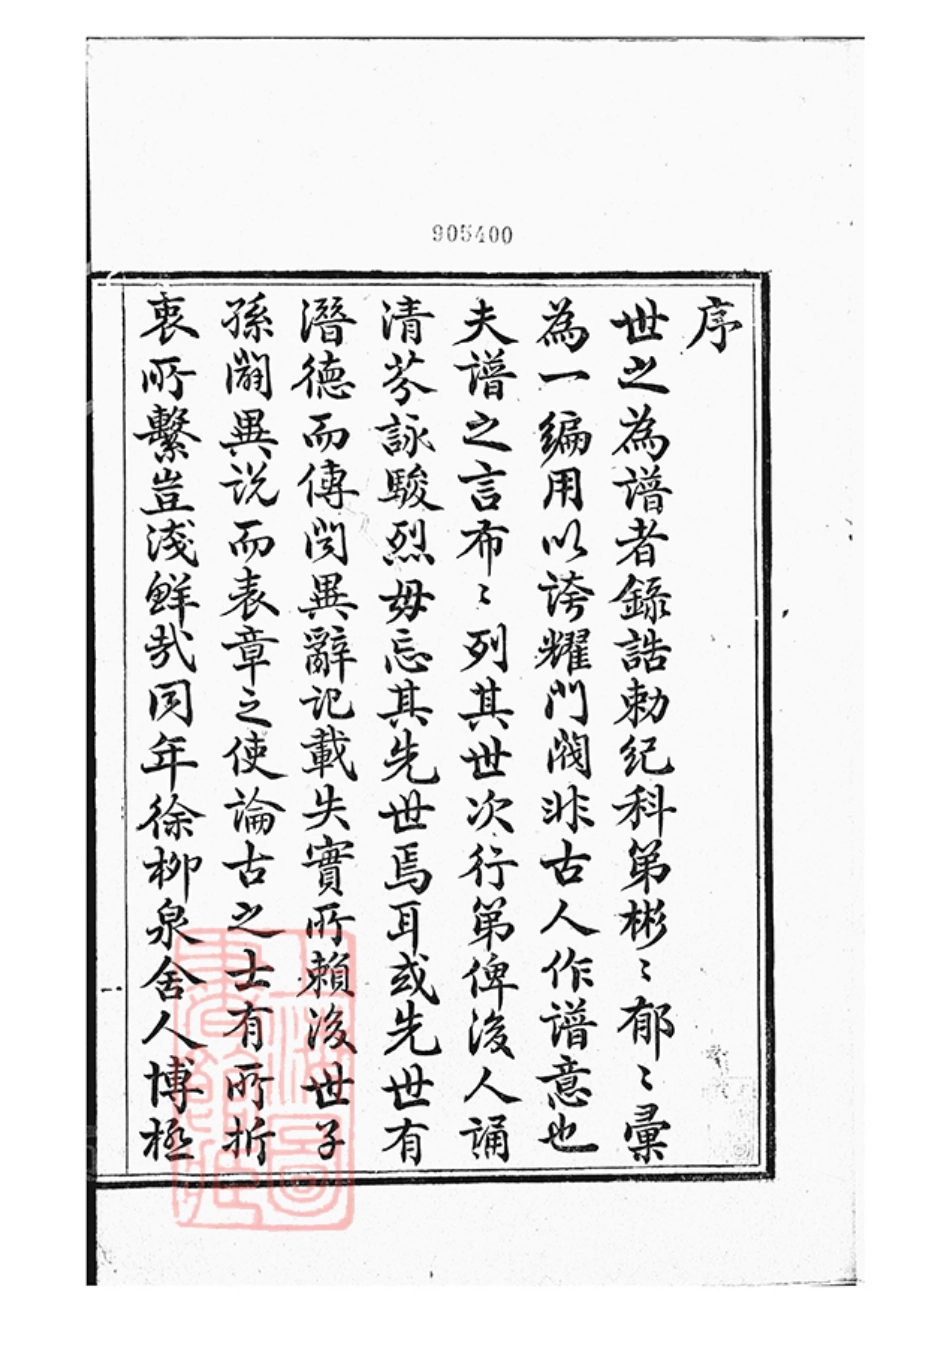 905400
序
世之為譜者錄誥勅纪科第彬〻郁〻彚
為一編用以誇耀門閥非古人作譜意也
夫譜之言布〻列其世次行第俾後人誦
清芬詠駿烈毋忘其先世焉耳或先世有
潛德而傳闻異辭记載失實所賴後世子
孫闢異说而表章之使論古之士有所折
衷所繫豈淺鮮哉同年徐柳泉舍人博極
上海圖書館藏